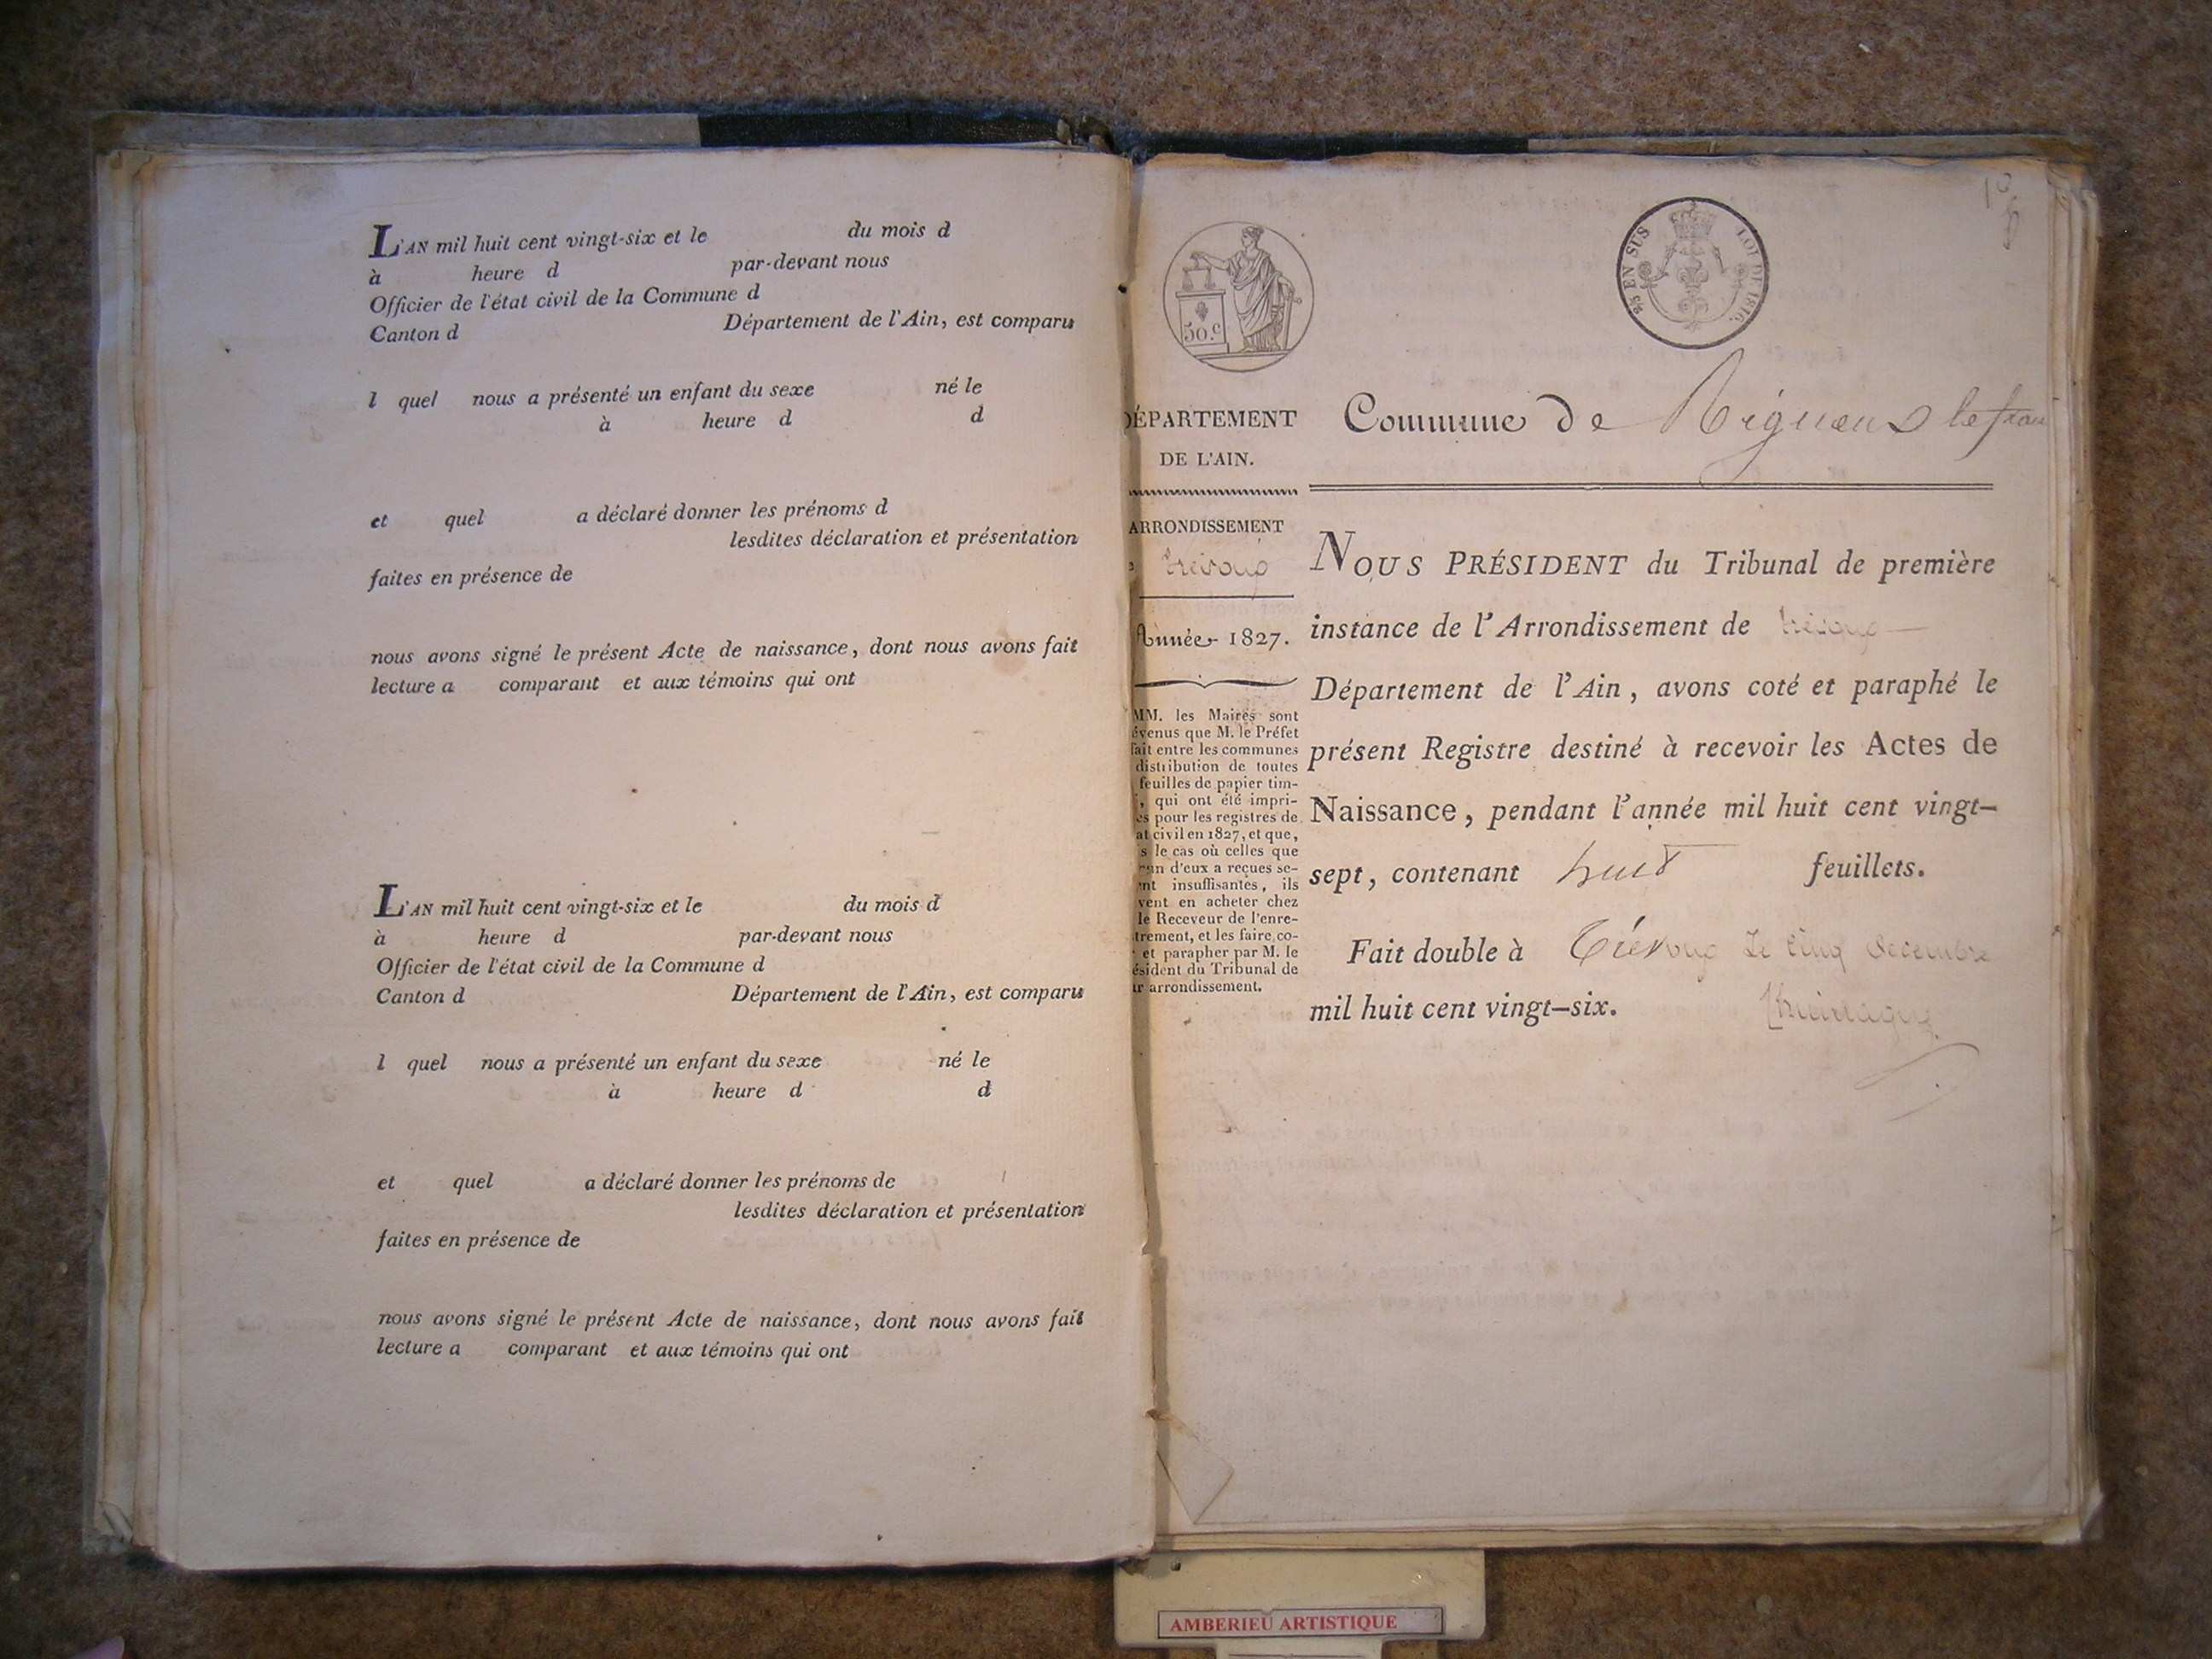 L'AN mil huit cent vingt-six et le du mois d
à heure d par-devant nous
Officier de l'état civil de la Commune d
Canton d Département de l'Ain, est comparu
l quel nous a présenté un enfant du sexe né le
à heure d d
et quel a déclaré donner les prénoms d
lesdites déclaration et présentation
faites en présence de
nous avons signé le présent Acte de naissance, dont nous avons fait
lecture a comparant et aux témoins qui ont
L'AN mil huit cent vingt-six et le du mois d
à heure d par-devant nous
Officier de l'état civil de la Commune d
Canton d Département de l'Ain, est comparu
l quel nous a présenté un enfant du sexe né le
à heure d d
et quel a déclaré donner les prénoms de
lesdites déclaration et présentation
faites en présence de
nous avons signé le présent Acte de naissance, dont nous avons fait
lecture a comparant et aux témoins qui ont
50.c
EN SUS LOI DE 1816.
DÉPARTEMENT
DE L'AIN.
ARRONDISSEMENT
trevoux
Année 1827.
MM. les Maires sont
évenus que M. le Préfet
fait entre les communes
distribution de toutes
feuilles de papier tim-
, qui ont été impri-
es pour les registres de
at civil en 1827, et que,
s le cas où celles que
un d'eux a reçues se-
nt insuffisantes, ils
vent en acheter chez
le Receveur de l'enre-
trement, et les faire co-
et parapher par M. le
ésident du Tribunal de
ur arrondissement.
Commune de Rigneux le fran
NOUS PRÉSIDENT du Tribunal de première
instance de l'Arrondissement de trévoux
Département de l'Ain, avons coté et paraphé le
présent Registre destiné à recevoir les Actes de
Naissance, pendant l'année mil huit cent vingt-
sept, contenant huit feuillets.
Fait double à Trévoux Le Cinq decembre
mil huit cent vingt-six.
AMBERIEU ARTISTIQUE